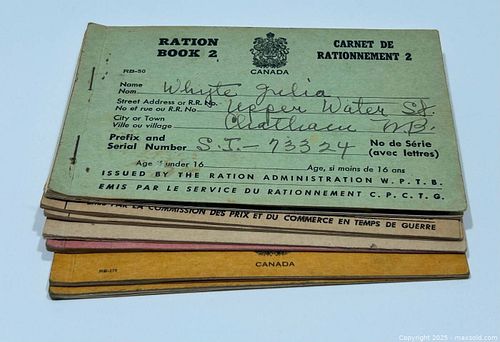 RATION BOOK 2
CARNET DE RATIONNEMENT 2
RB-50
CANADA
Name Nom Whyte Julia
Street Address or R.R. No. No et rue ou R.R. No Upper Water St.
City or Town Ville ou village Chatham N.B.
Prefix and Serial Number S.T.- 73324 No de Série (avec lettres)
Age if under 16 Age, si moins de 16 ans
ISSUED BY THE RATION ADMINISTRATION W.P.T.B.
EMIS PAR LE SERVICE DU RATIONNEMENT C.P.C.T.G.
PAR LA COMMISSION DES PRIX ET DU COMMERCE EN TEMPS DE GUERRE
CANADA
Copyright 2025 - maxsold.com